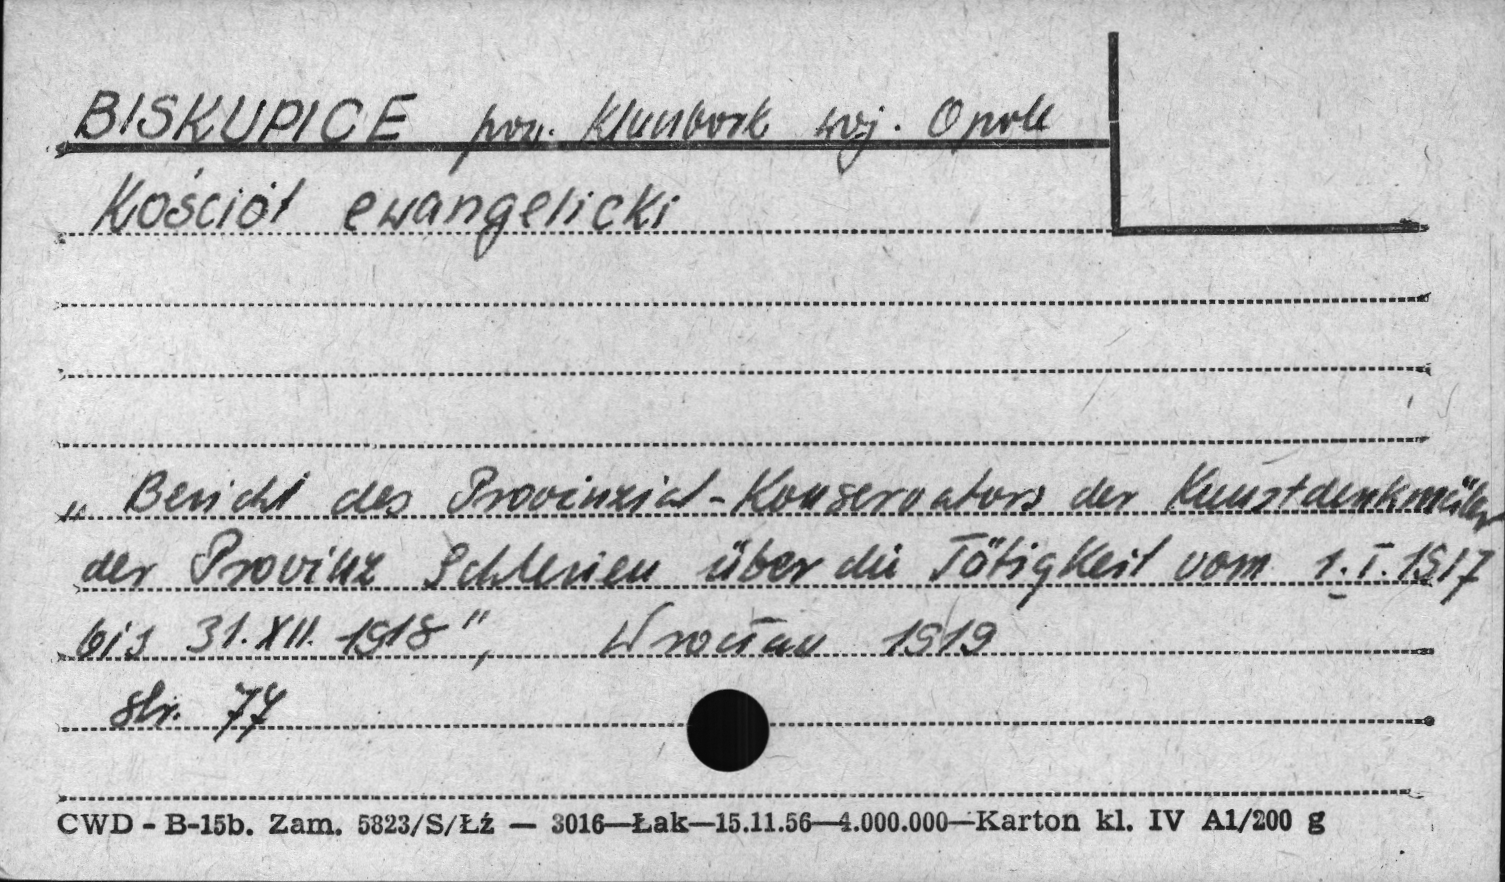 BISKUPICE pow. Kluczbork woj. Opole
Kościół ewangelicki
„Bericht des Provinzial-Konservators der Kunstdenkmäler
der Provinz Schlesien über die Tätigkeit vom 1.I.1917
bis 31.XII.1918", Wrocław 1919
str. 77
CWD - B-15b. Zam. 5823/S/Łź — 3016—Łak—15.11.56—4.000.000—Karton kl. IV A1/200 g